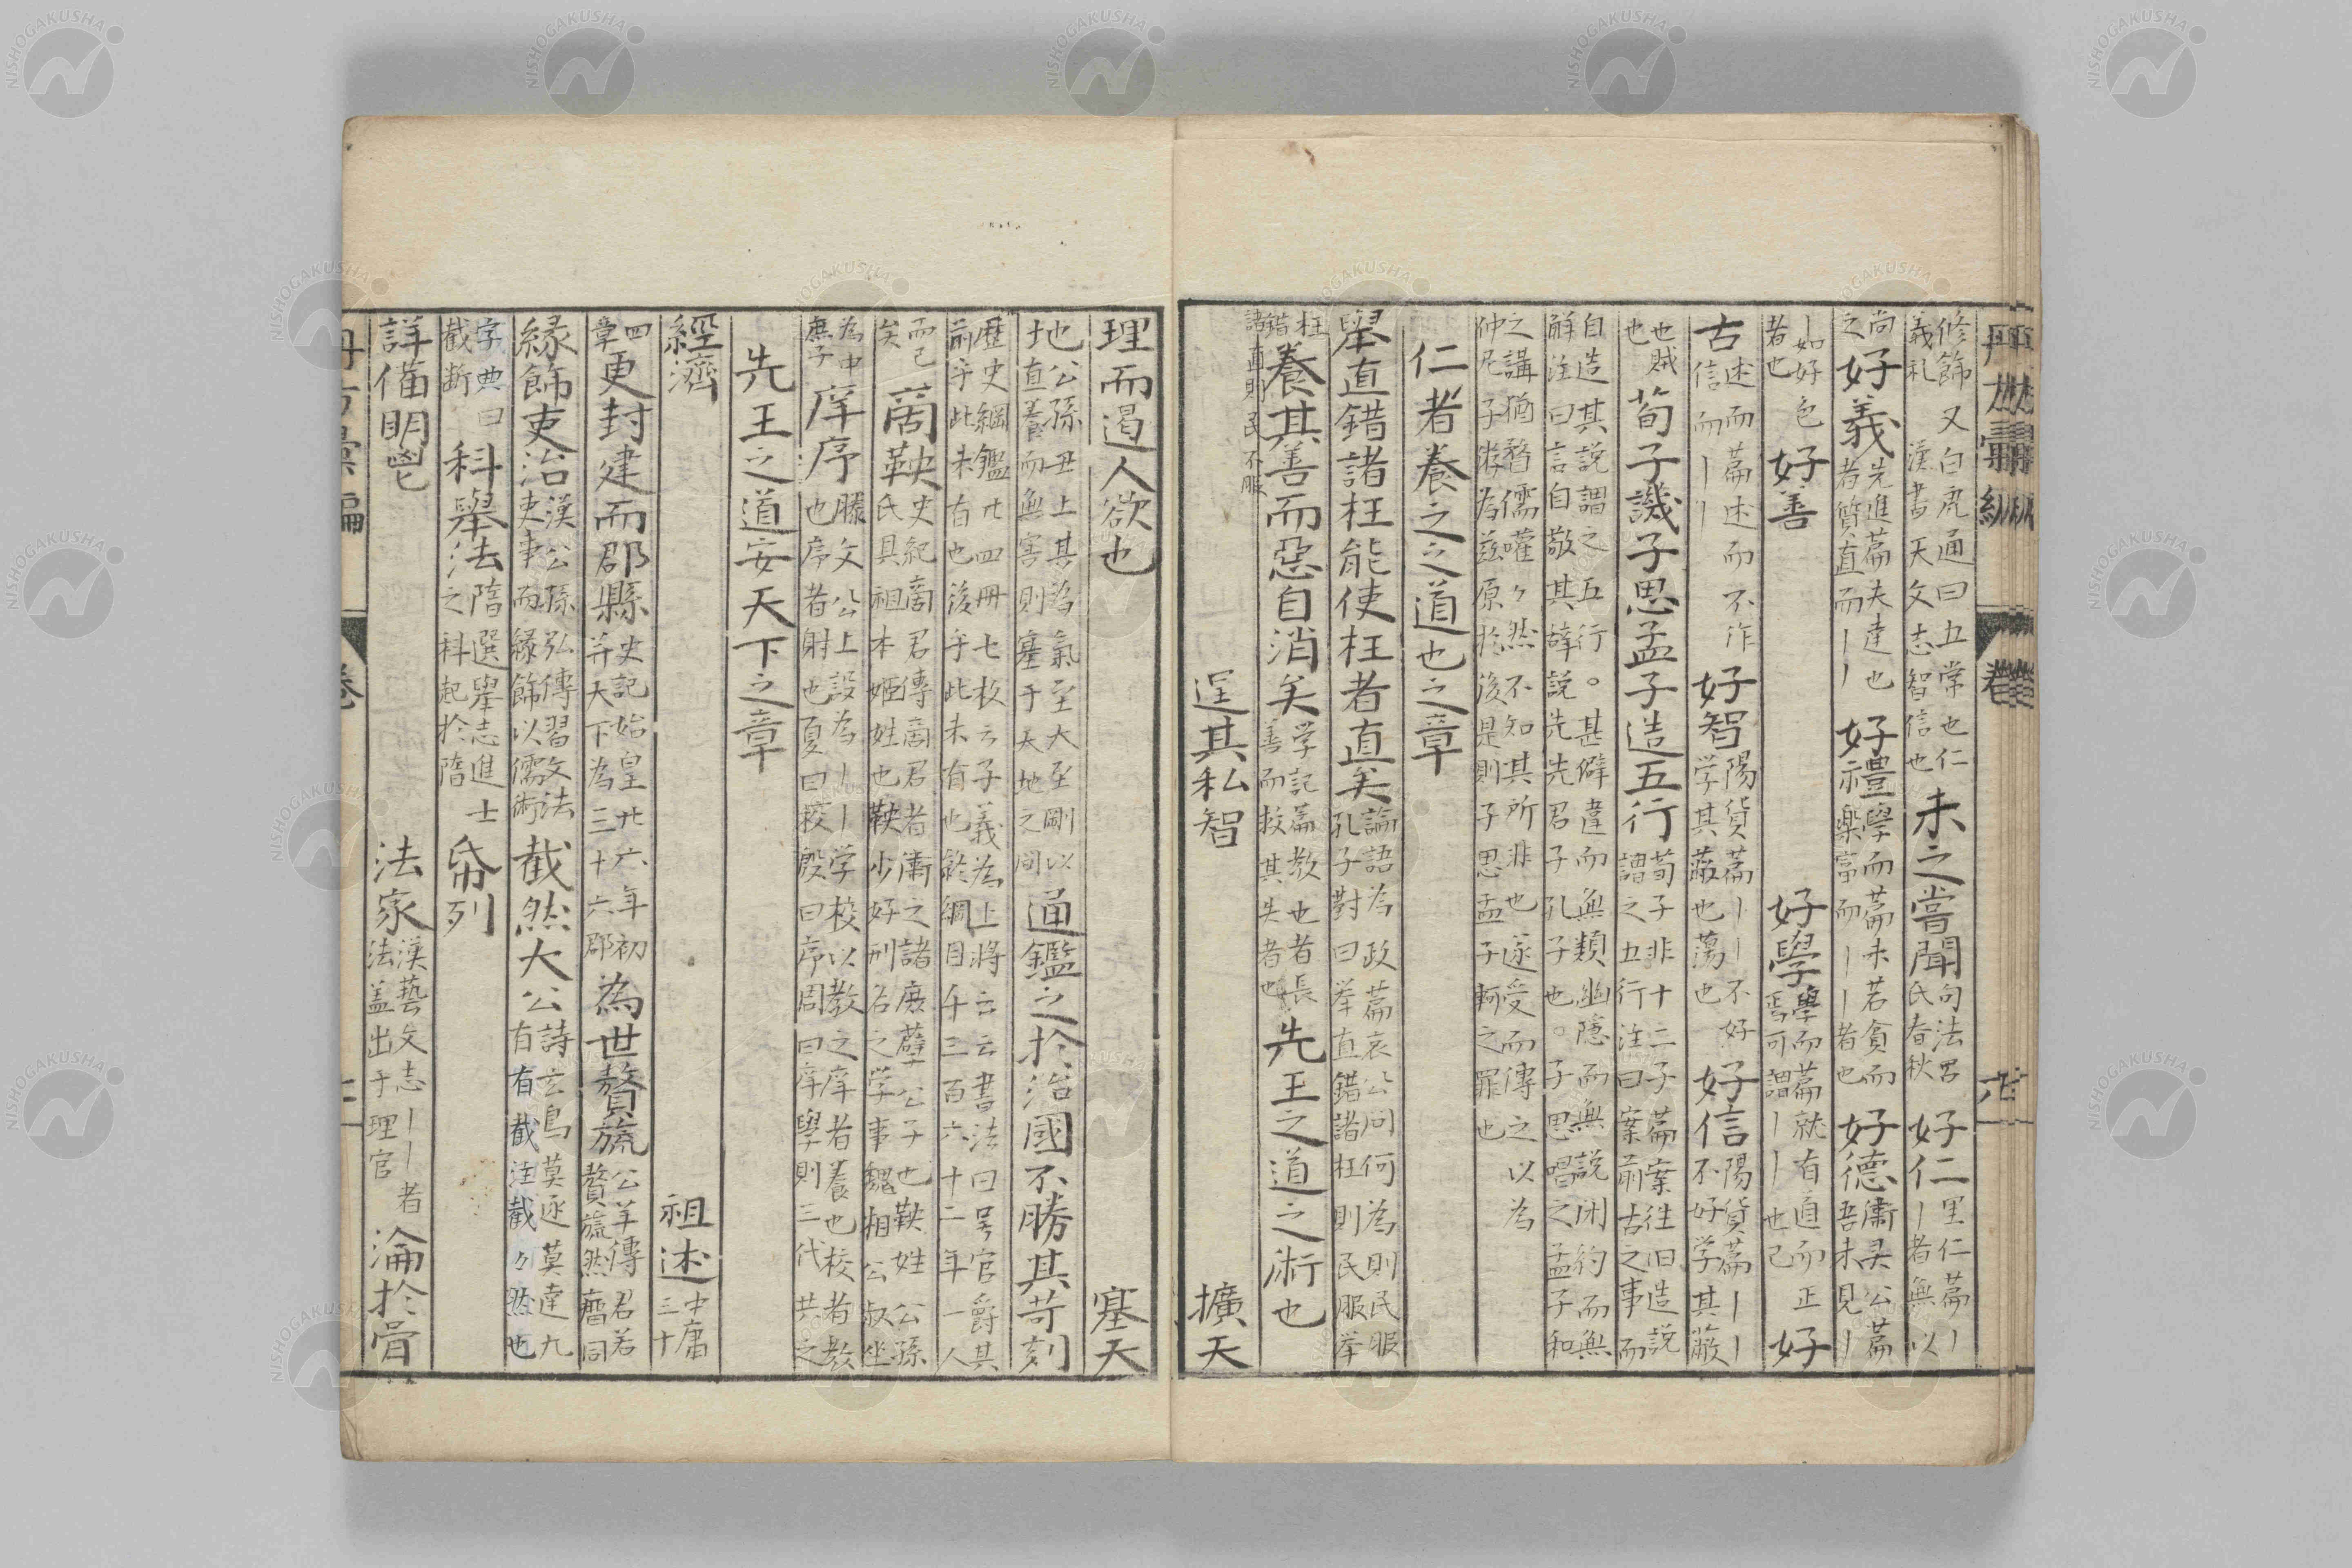 修飾 又白虎通曰五常也仁
義礼 漢書天文志智信也
未之嘗聞
句法呂
氏春秋
好仁
里仁篇〡
〡者無以
尚
之
好義
先進篇夫達也
者質直而〡〡
好禮
學而篇未若貧而
樂富而〡〡者也
好德
衛灵公篇
吾未見〡
〡如好色
者也
好善
好學
學而篇就有道而正
焉可謂〡〡也已
好
古
述而篇述而不作
信而〡〡
好智
陽貨篇〡〡不好
学其蔽也蕩也
好信
陽貨篇〡〡
不好学其蔽
也賊
也
荀子譏子思孟子造五行
荀子非十二子篇案往旧造説
謂之五行注曰案前古之事而
自造其説謂之五行。甚僻違而無類幽隱而無説闭約而無
解注曰言自敬其辞説先先君子孔子也。子思唱之孟子和
之講猶瞀儒嚾々然不知其所非也遂受而傳之以為
仲尼子游為兹原於後是則子思孟子軻之罪也
仁者養之之道也之章
舉直錯諸枉能使枉者直矣
論語為政篇哀公问何為則民服
孔子對曰举直錯諸枉則民服举
枉錯
諸直則民不服
養其善而惡自消矣
学記篇教也者長
善而救其失者也
先王之道之術也
逞其私智
擴天
理而遏人欲也
塞天
地
公孫丑上其為氣至大至剛以
直養而無害則塞于天地之间
通鑑之於治國不勝其苛刻
歴史綱鑑廿四冊七枚云子義為上將云云書法曰呉官爵其
前乎此未有也後乎此未有也終綱目千三百六十二年一人
而已
矣
商鞅
史紀商君傳商君者衛之諸庶孽公子也鞅姓公孫
氏其祖本姬姓也鞅少好刑名之学事魏相公叔坐
為中
庶子
庠序
滕文公上設為〡〡学校以教之庠者養也校者教
也序者射也夏曰校殷曰序周曰庠學則三代共之
先王之道安天下之章
經濟
祖述
中庸
三十
四
章
更封建而郡縣
史記始皇廿六年初
并天下為三十六郡
為世贅旒
公羊傳君若
贅旒然齋同
緣飾吏治
漢公孫弘傳習文法
吏事而緣飾以儒術
截然大公
詩玄鳥莫遂莫達九
有有截注截々然也
字典曰
截断
科舉法
隋選舉志進士
之科起於隋
帋列
詳備明鬯
法家
漢藝文志〡〡者
法盖出于理官
淪於骨